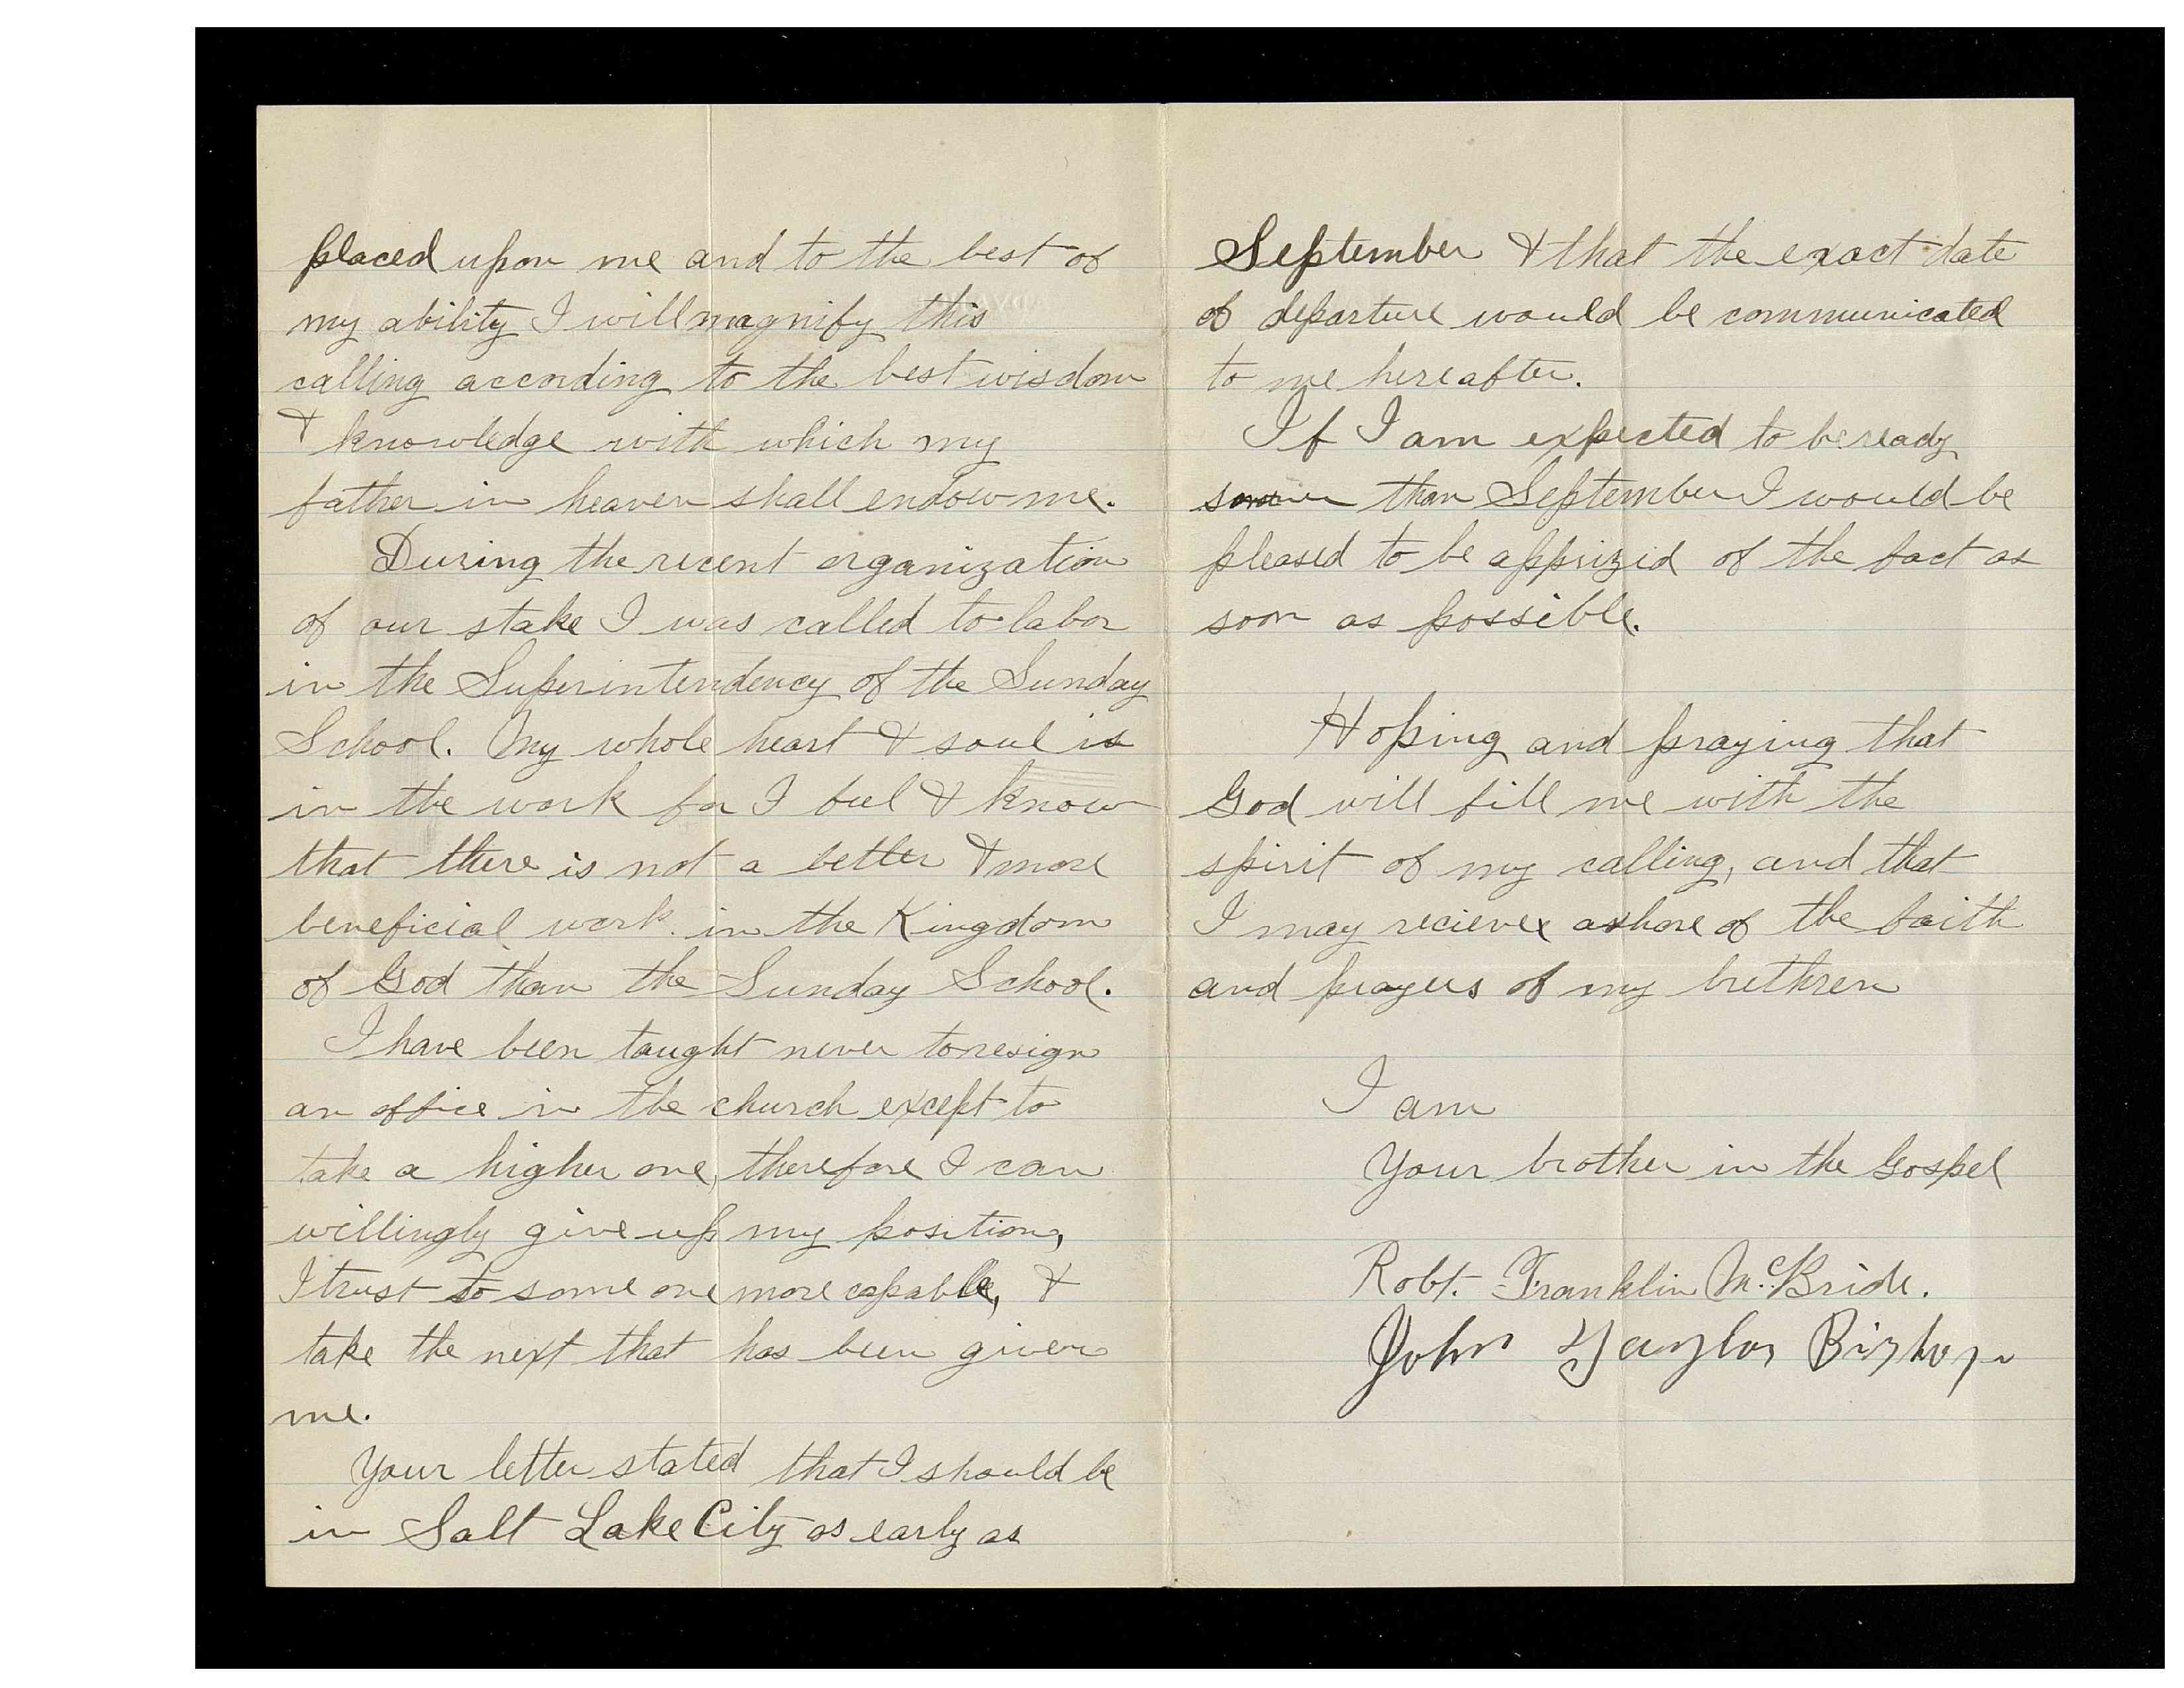 placed upon me and to the best of
my ability I will magnify this
calling according to the best wisdom
& knowledge with which my
father in heaven shall endow me.
During the recent organization
of our stake I was called to labor
in the Superintendency of the Sunday
School. My whole heart & soul is
in the work for I feel & know
that there is not a better & more
beneficial work in the Kingdom
of God than the Sunday School.
I have been taught never to resign
an office in the church except to
take a higher one, therefore I can
willingly give up my position,
I trust to some one more capable, &
take the next that has been given
me.
Your letter stated that I should be
in Salt Lake City as early as
September & that the exact date
of departure would be communicated
to me hereafter.
If I am expected to be ready
than September I would be
pleased to be apprized of the fact as
soon as possible.
Hoping and praying that
God will fill me with the
spirit of my calling, and that
I may recieve a share of the faith
and prayers of my brethren
I am
Your brother in the Gospel
Robt. Franklin McBride.
John Taylor Bishop